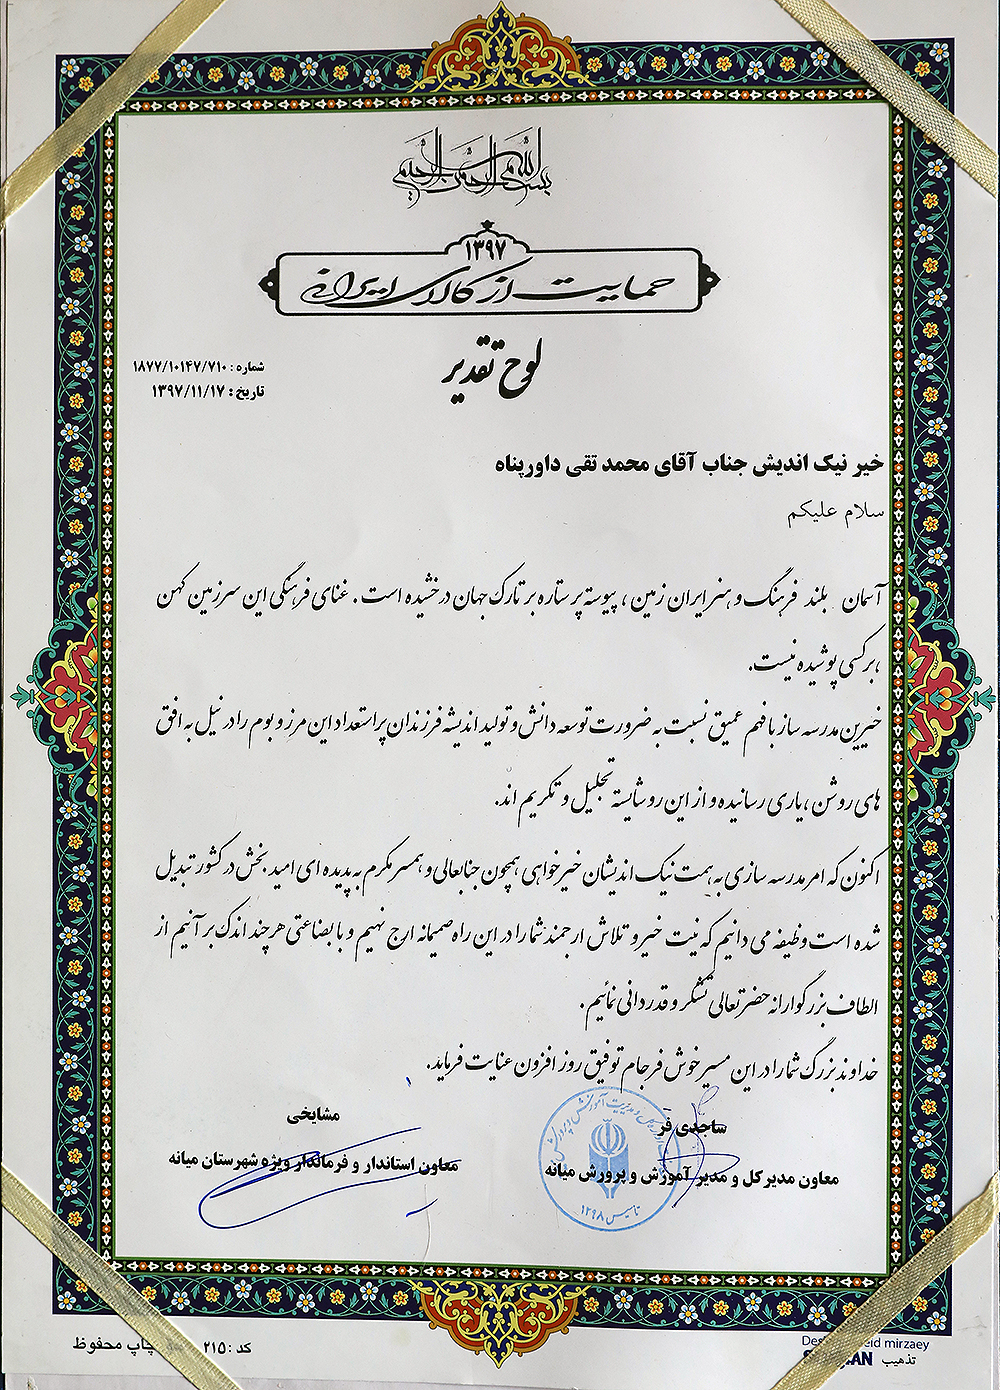 بسم الله الرحمن الرحیم
۱۳۹۷
حمایت از کالای ایرانی
لوح تقدیر
شماره : ۱۸۷۷/۱۰۱۴۷/۷۱۰
تاریخ : ۱۳۹۷/۱۱/۱۷
خیر نیک اندیش جناب آقای محمد تقی داورپناه
سلام علیکم
آسمان بلند فرهنگ و هنر ایران زمین ، پیوسته پر ستاره بر تارک جهان درخشیده است . غنای فرهنگی این سرزمین کهن
،بر کسی پوشیده نیست.
خیرین مدرسه ساز با فهم عمیق نسبت به ضرورت توسعه دانش و تولید اندیشه فرزندان پر استعداد این مرز و بوم را در نیل به افق
های روشن ،یاری رسانیده و از این رو شایسته تجلیل و تکریم اند.
اکنون که امر مدرسه سازی به همت نیک اندیشان خیرخواهی همچون جنابعالی و همسر مکرم به پدیده ای امید بخش در کشور تبدیل
شده است وظیفه می دانیم که نیت خیر و تلاش ارجمند شما را در این راه صمیمانه ارج نهیم و با بضاعتی هر چند اندک بر آنیم از
الطاف بزرگوارانه حضرتعالی تشکر و قدردانی نمائیم .
خداوند بزرگ شما را در این مسیر خوش فرجام توفیق روز افزون عنایت فرماید.
ساجدی فر
معاون مدیر کل و مدیر آموزش و پرورش میانه
مشایخی
معاون استاندار و فرماندار ویژه شهرستان میانه
تاسیس ۱۲۹۸
کد : ۲۱۵
چاپ محفوظ
mirzaey
تذهیب